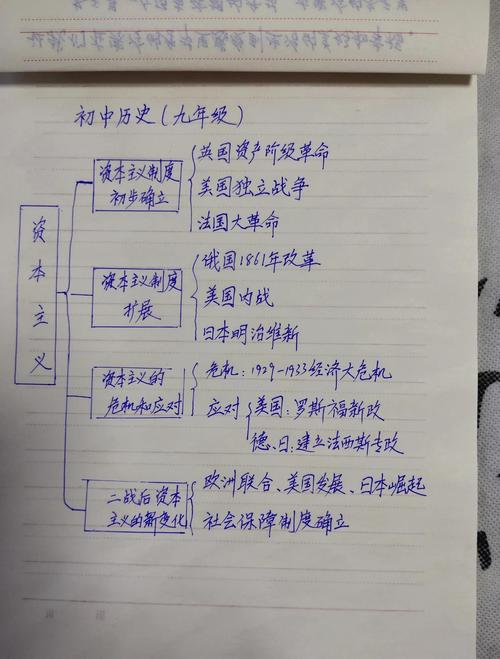 初中历史(九年级)
资本主义
资本主义制度
初步确立
英国资产阶级革命
美国独立战争
法国大革命
资本主义制度
扩展
俄国1861年改革
美国内战
日本明治维新
资本主义的
危机和应对
危机:1929-1933经济大危机
应对
美国:罗斯福新政
德、日:建立法西斯专政
二战后资本
主义的新变化
欧洲联合、美国发展、日本崛起
社会保障制度确立